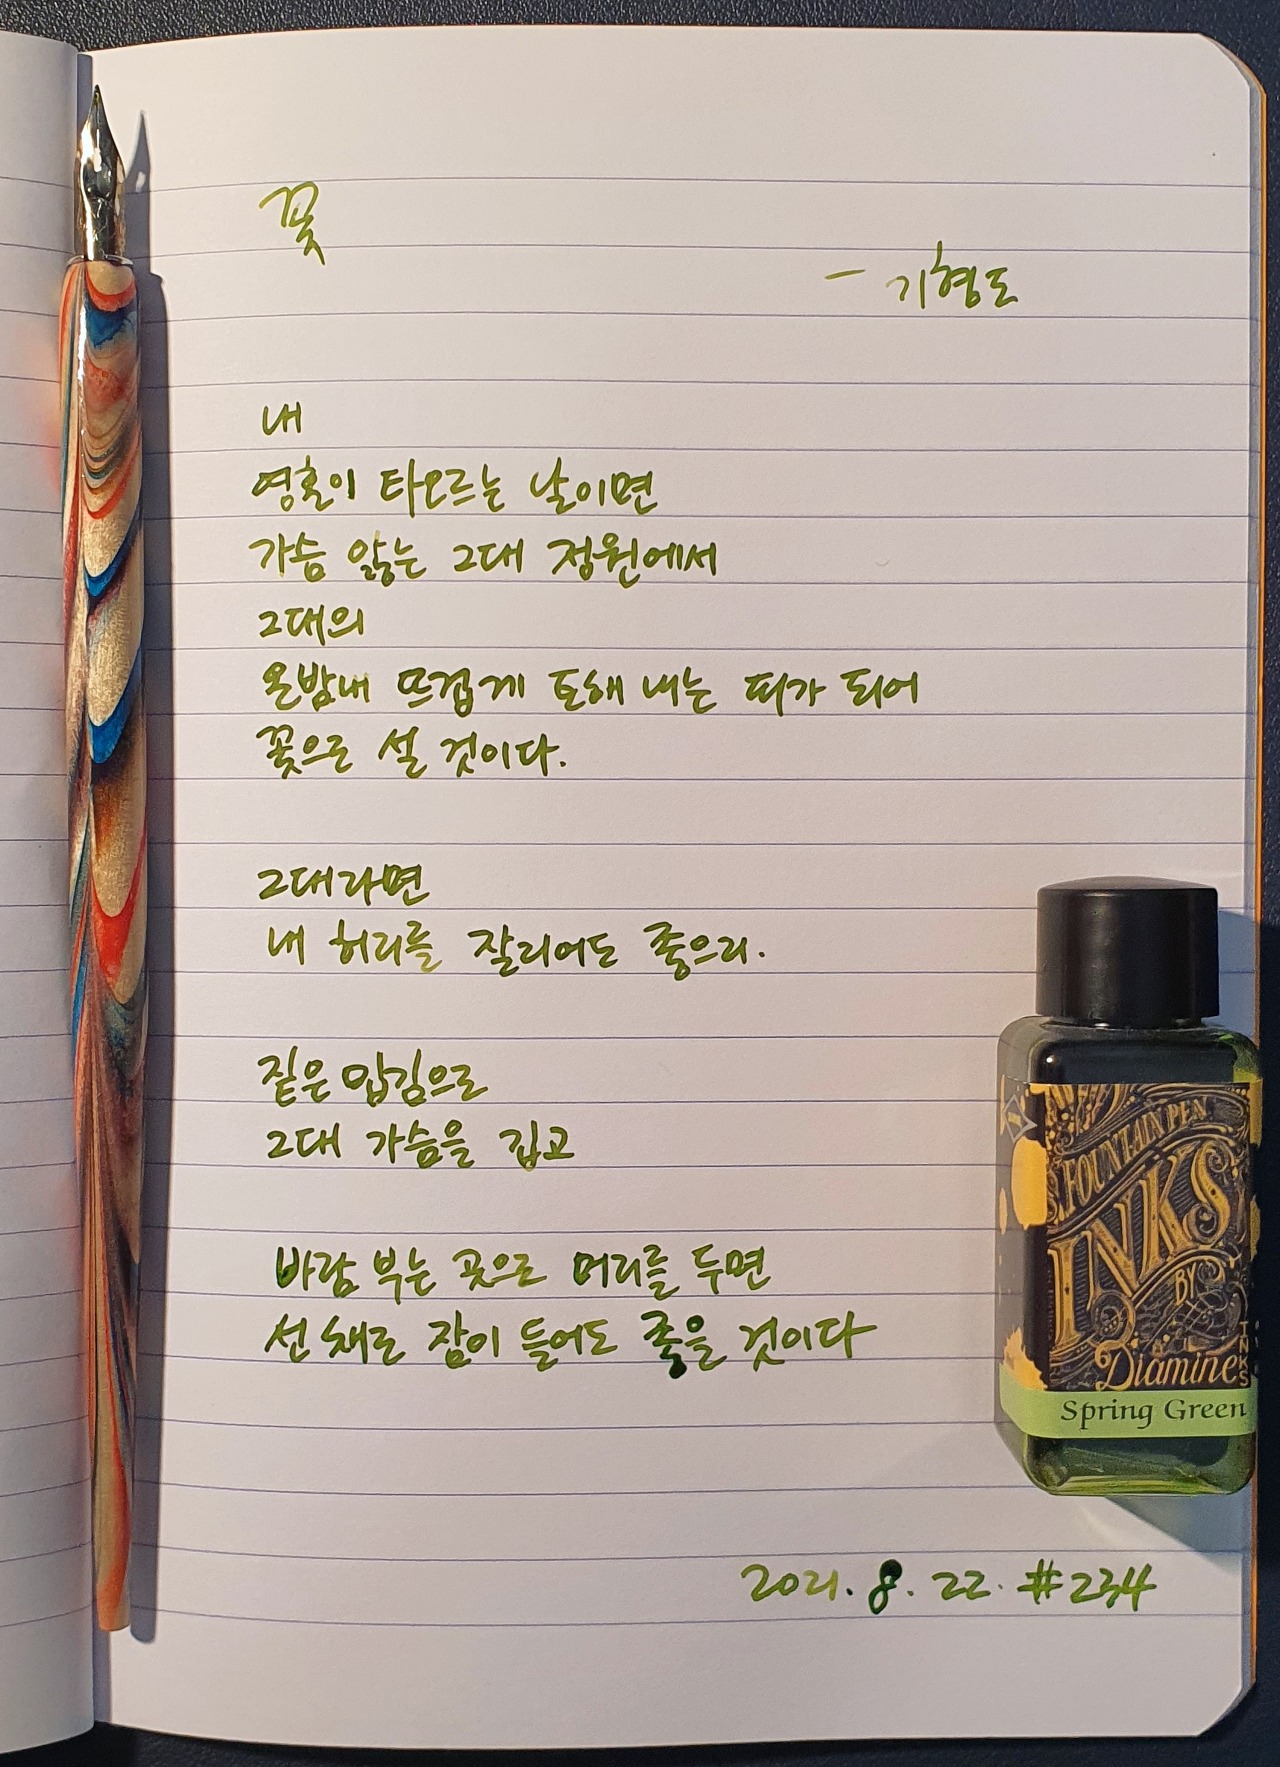 꽃
- 기형도
내
영혼이 타오르는 날이면
가슴 앓는 그대 정원에서
그대의
온밤내 뜨겁게 토해 내는 피가 되어
꽃으로 설 것이다.
그대라면
내 허리를 잘리어도 좋으리.
짙은 입김으로
그대 가슴을 깁고
바람 부는 곳으로 머리를 두면
선 채로 잠이 들어도 좋을 것이다
FOUNTAIN PEN
INKS
BY
Diamine
INKS
Spring Green
2021. 8. 22. #234